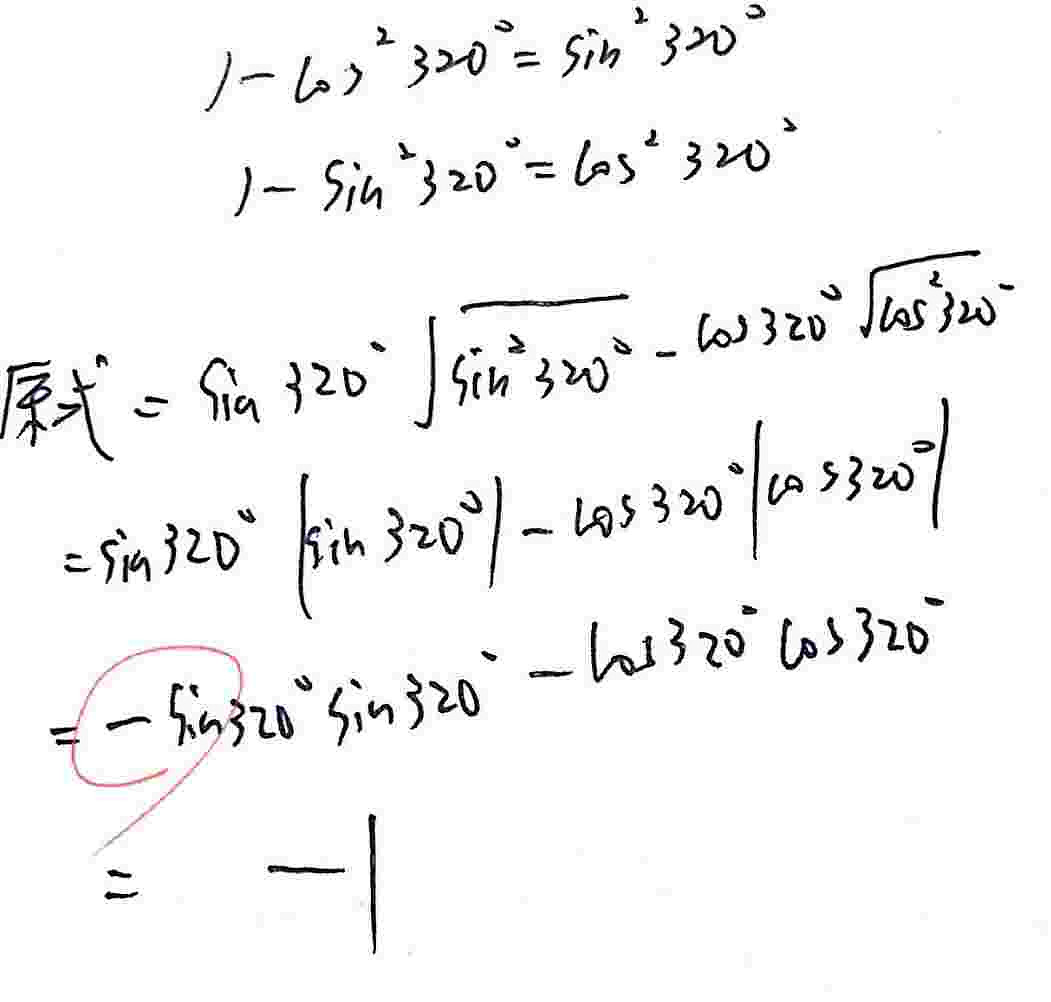 1-cos²320°=sin²320°
1-sin²320°=cos²320°
原式=sin320°√sin²320°-cos320°√cos²320°
=sin320°|sin320°|-cos320°|cos320°|
=-sin320°sin320°-cos320°cos320°
=-1